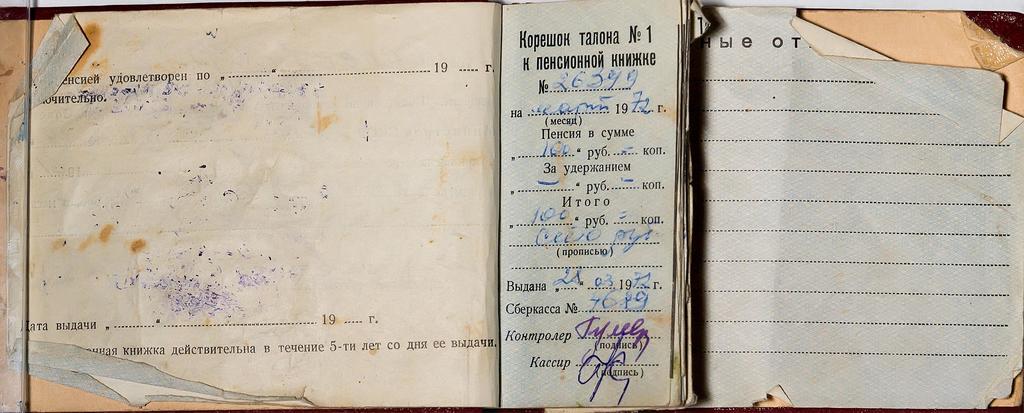 енсией удовлетворен по „ “ 19 г.
ючительно.
Дата выдачи „ “ 19 г.
нная книжка действительна в течение 5-ти лет со дня ее выдачи.
Корешок талона № 1
к пенсионной книжке
№ 26399
на март 1972 г.
(месяц)
Пенсия в сумме
„ 100 “ руб. – коп.
За удержанием
„ – “ руб. – коп.
Итого
„ 100 “ руб. – коп.
Сто руб
(прописью)
Выдана „ 28 “ 03 1972 г.
Сберкасса № 7689
Контролер
(подпись)
Кассир
(подпись)
ные от